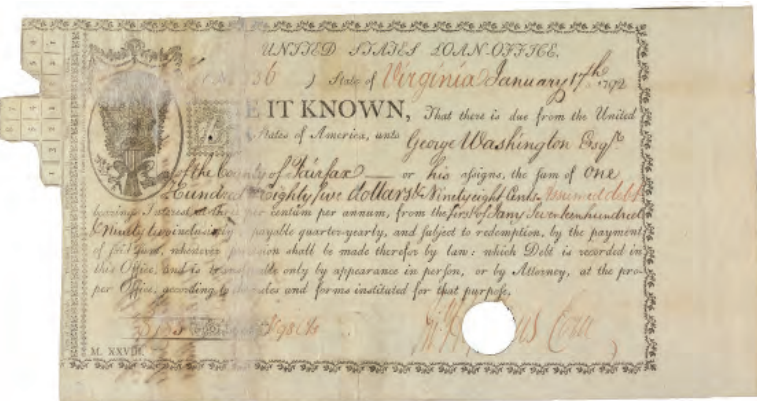 UNITED STATES LOAN-OFFICE.
State of Virginia January 17th 1792
BE IT KNOWN, That there is due from the United
States of America, unto George Washington Esqr.
of the County of Fairfax — or his assigns, the sum of One
Hundred Eighty five dollars & Ninetyeight Cents Assumed debt
bearing Interest at three per centum per annum, from the first of Jany Seventeenhundred
& Ninety two inclusively payable quarter-yearly, and subject to redemption, by the payment
of said sum, whenever provision shall be made therefor by law: which Debt is recorded in
this Office, and is transferable only by appearance in person, or by Attorney, at the pro-
per Office, according to the rules and forms instituted for that purpose.
98 Cts
M. XXVIII.